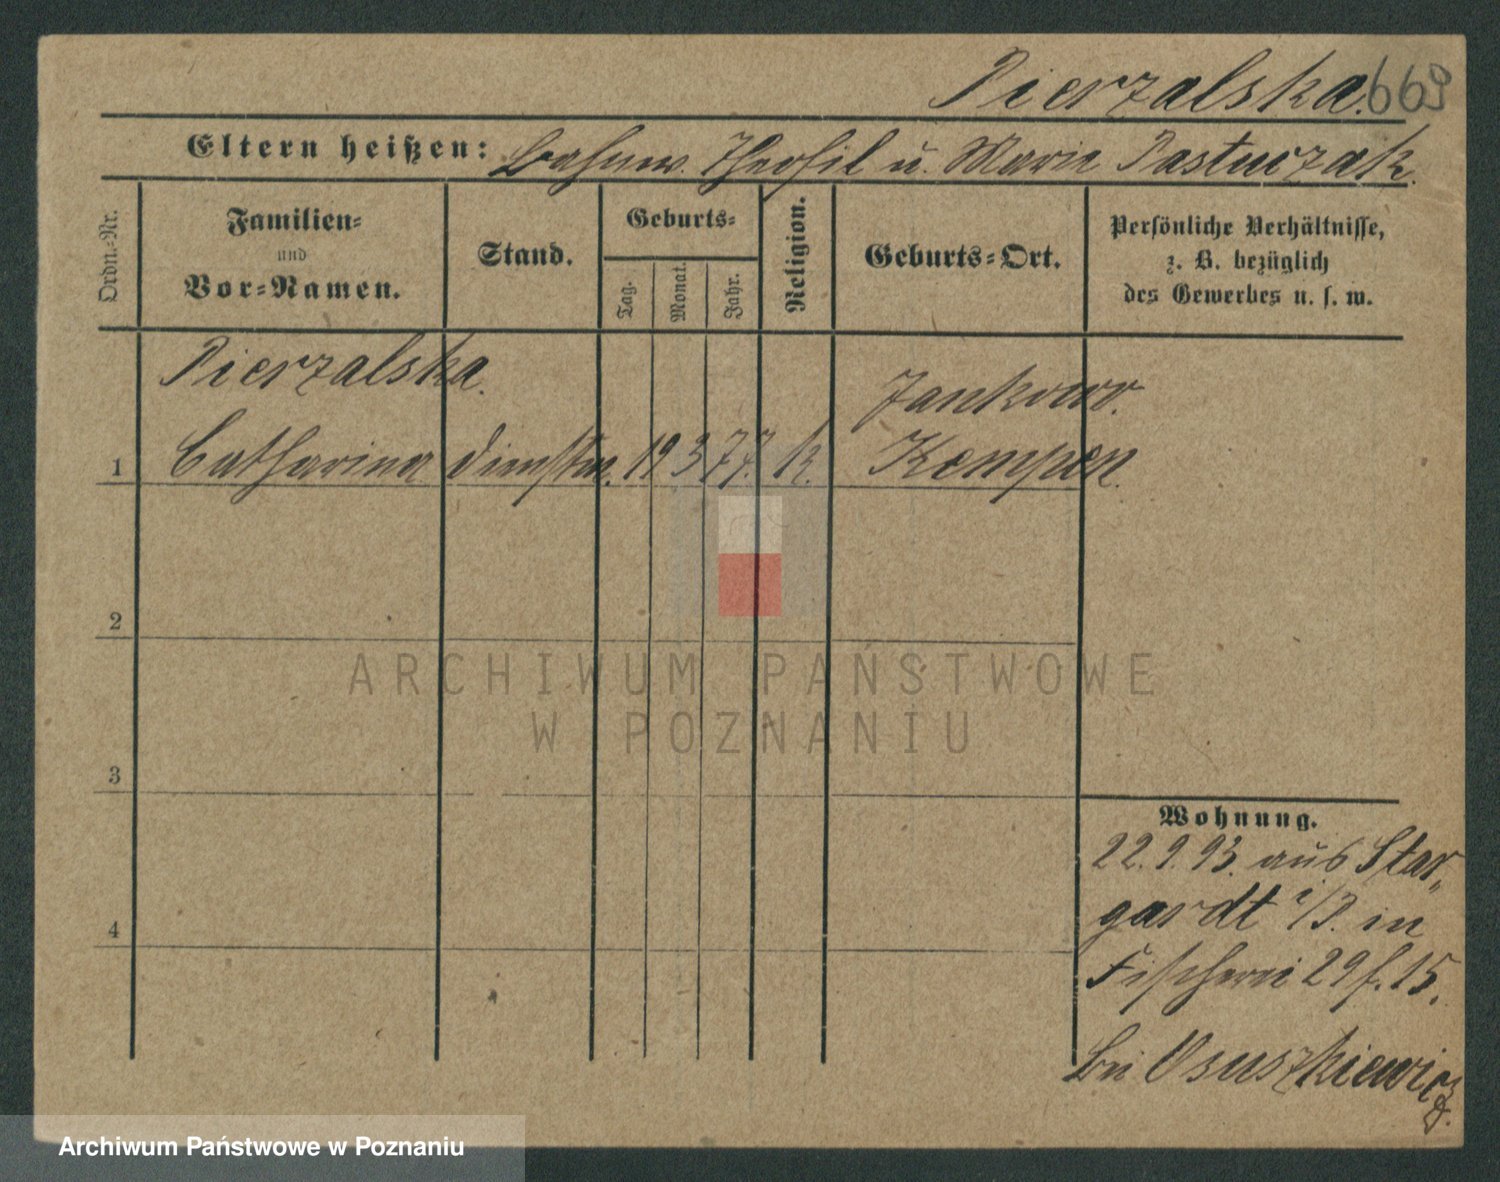 Pierzalska. 669
Eltern heißen: Bahnw. Theofil u. Marie Pasturzak.
Ordn.-Nr.
Familien-
und
Vor-Namen.
Stand.
Geburts-
Tag.
Monat.
Jahr.
Religion.
Geburts-Ort.
Persönliche Verhältnisse,
z. B. bezüglich
des Gewerbes u. s. w.
Pierzalska.
Jankowo.
1 Catharina Dienstm. 19 3 77. k. Kempen.
2
ARCHIWUM PAŃSTWOWE
W POZNANIU
3
Wohnung.
22.9.93. aus Star-
gardt i/P. in
4
Fischerei 29 f. 15.
bei Osuszkiewicz
Archiwum Państwowe w Poznaniu